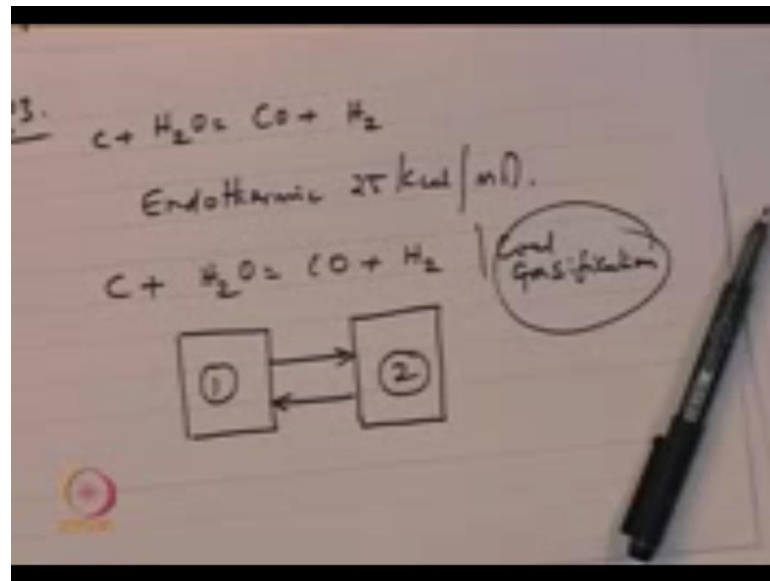 23.
C + H₂O = CO + H₂
Endothermic 25 kcal/mol.
C + H₂O = CO + H₂ | Coal
Gasification
1 2